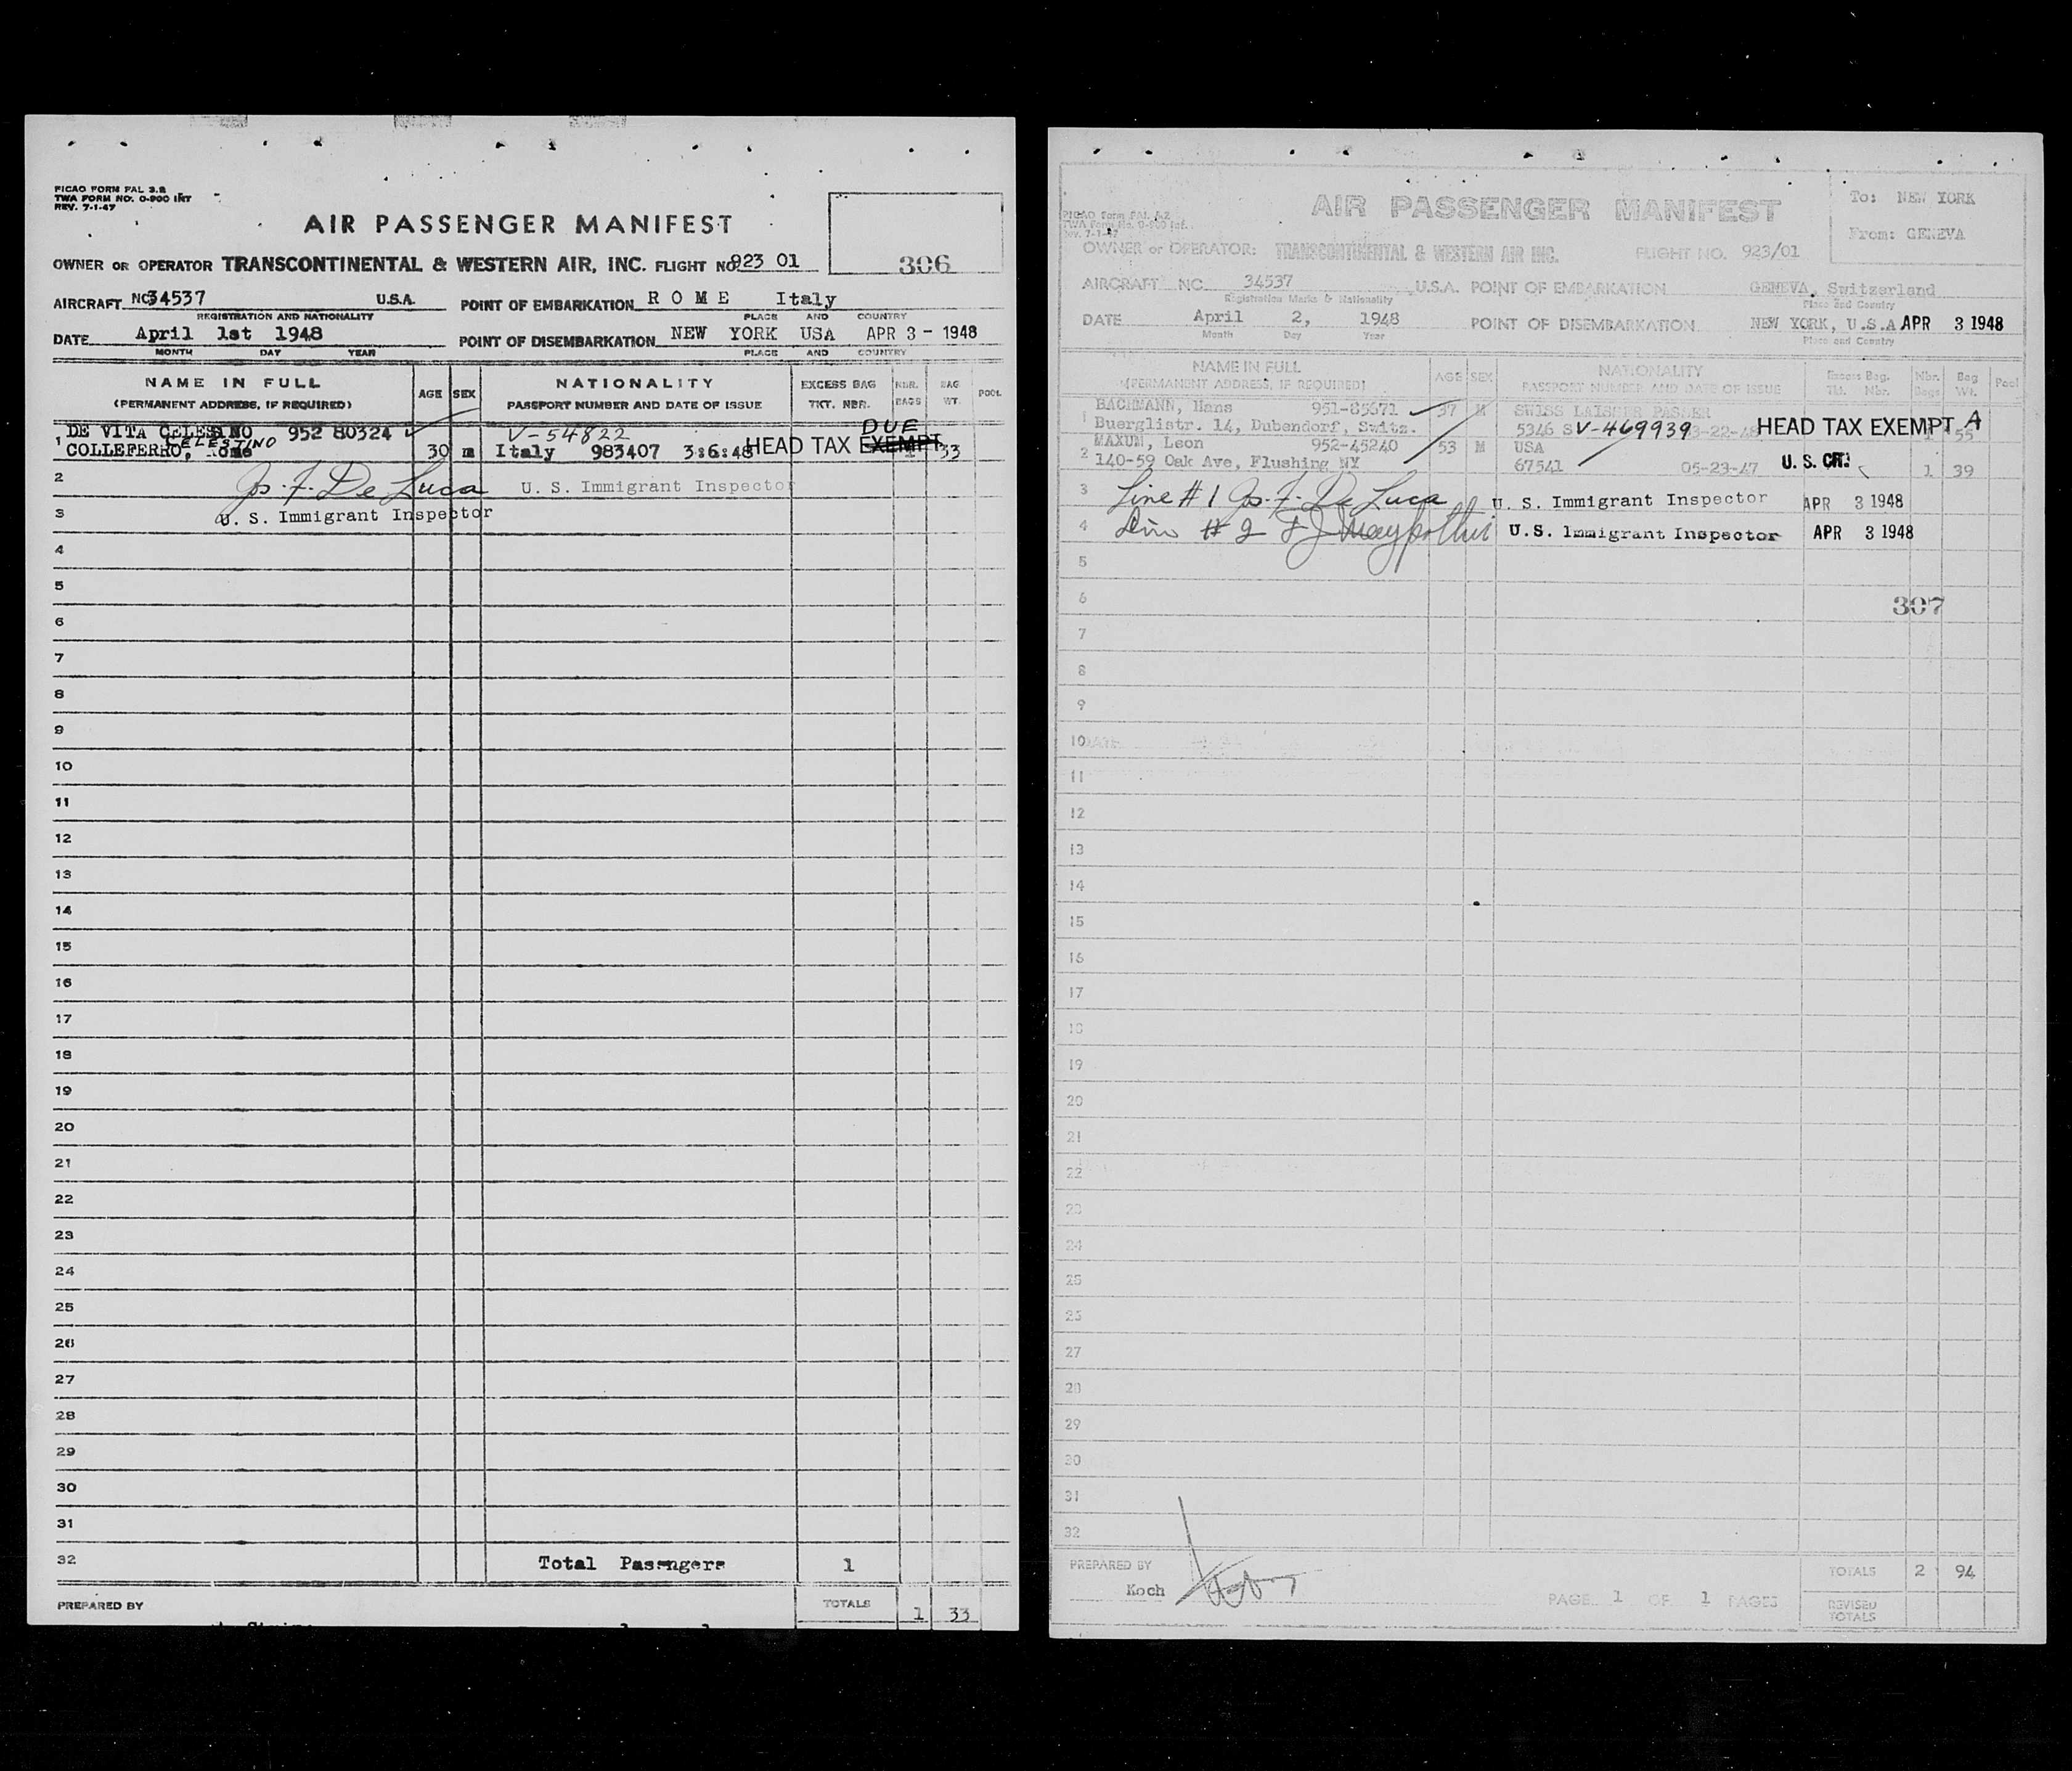 PICAO FORM PAL 3.2
TWA FORM NO. O-900 INT
REV. 7-1-47
AIR PASSENGER MANIFEST
OWNER OR OPERATOR TRANSCONTINENTAL & WESTERN AIR, INC. FLIGHT NO. 923 01
306
AIRCRAFT NC34537 U.S.A. POINT OF EMBARKATION R O M E Italy
REGISTRATION AND NATIONALITY PLACE AND COUNTRY
DATE April 1st 1948 POINT OF DISEMBARKATION NEW YORK USA APR 3 - 1948
MONTH DAY YEAR PLACE AND COUNTRY
NAME IN FULL AGE SEX NATIONALITY EXCESS BAG NBR. BAG POOL
(PERMANENT ADDRESS, IF REQUIRED) PASSPORT NUMBER AND DATE OF ISSUE TKT. NBR. BAGS WT.
DE VITA 952 80324 V-54822 DUE
CELESTINO
1 COLLEFERRO, Rome 30 m Italy 983407 3:6:48 HEAD TAX EXEMPT 1 33
2 Jos. F. De Luca U. S. Immigrant Inspector
3 U. S. Immigrant Inspector
4
5
6
7
8
9
10
11
12
13
14
15
16
17
18
19
20
21
22
23
24
25
26
27
28
29
30
31
32 Total Passngers 1
PREPARED BY TOTALS 1 33
AIR PASSENGER MANIFEST
To: NEW YORK
From: GENEVA
PICAO Form PAL
TWA Form No. O-900 Int.
Rev. 7-1-47
OWNER or OPERATOR: TRANSCONTINENTAL & WESTERN AIR INC. FLIGHT NO. 923/01
AIRCRAFT NC. 34537 U.S.A. POINT OF EMBARKATION GENEVA, Switzerland
Registration Marks & Nationality Place and Country
DATE April 2, 1948 POINT OF DISEMBARKATION NEW YORK, U.S.A APR 3 1948
Month Day Year Place and Country
NAME IN FULL AGE SEX NATIONALITY Excess Bag. Nbr. Bag Pool
(PERMANENT ADDRESS, IF REQUIRED) PASSPORT NUMBER AND DATE OF ISSUE Tkt. Nbr. Bags Wt.
BACHMANN, Hans 951-85671 37 M SWISS LAISSER PASSER
1 Buerglistr. 14, Dubendorf, Switz. 5346 S V-469939 HEAD TAX EXEMPT A 1 55
MAXUM, Leon 952-45240 53 M USA
2 140-59 Oak Ave, Flushing NY 67541 05-23-47 U. S. CIT. 1 39
3 Line # 1 Jos. F. De Luca U. S. Immigrant Inspector APR 3 1948
4 Line # 2 U.S. Immigrant Inspector APR 3 1948
5
6 307
7
8
9
10 DATE
11
12
13
14
15
16
17
18
19
20
21
22
23
24
25
26
27
28
29
30
31
32
PREPARED BY TOTALS 2 94
Koch PAGE 1 OF 1 PAGES REVISED
TOTALS